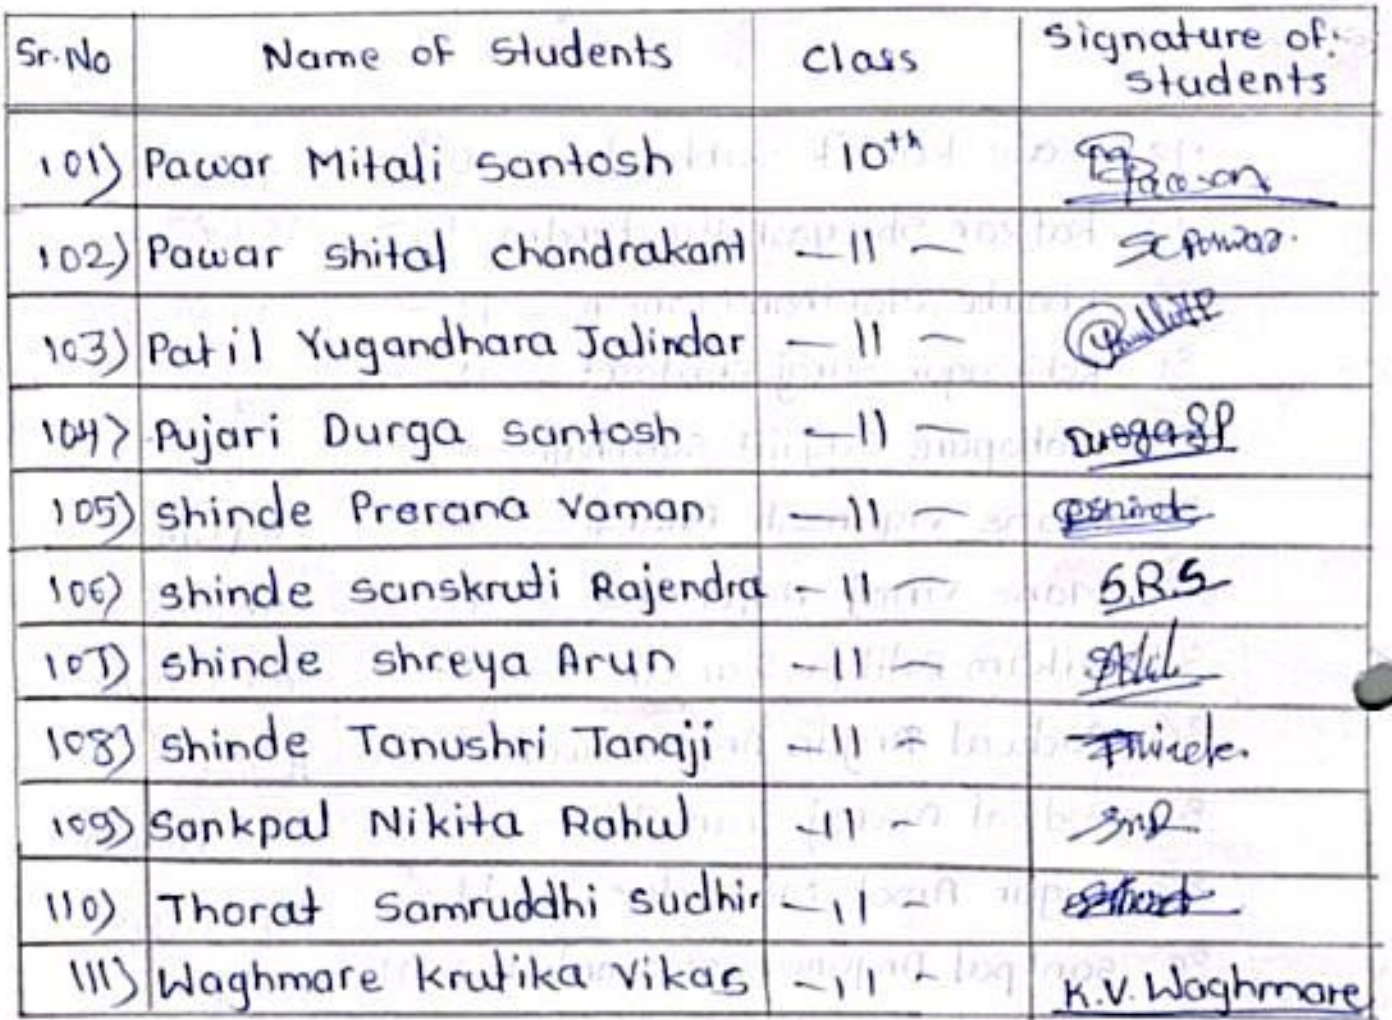 Sr.No Name of Students Class Signature of students
101) Pawar Mitali Santosh 10th
102) Pawar Shital Chandrakant —11— SCPawar.
103) Patil Yugandhara Jalindar —11—
104) Pujari Durga Santosh —11— DurgaSP
105) Shinde Prerana Vaman —11— PShinde
106) Shinde Sanskruti Rajendra —11— S.R.S
107) Shinde Shreya Arun —11—
108) Shinde Tanushri Tanaji —11—
109) Sankpal Nikita Rahul —11— SNR
110) Thorat Samruddhi Sudhir —11—
111) Waghmare Krutika Vikas —11— K.V. Waghmare